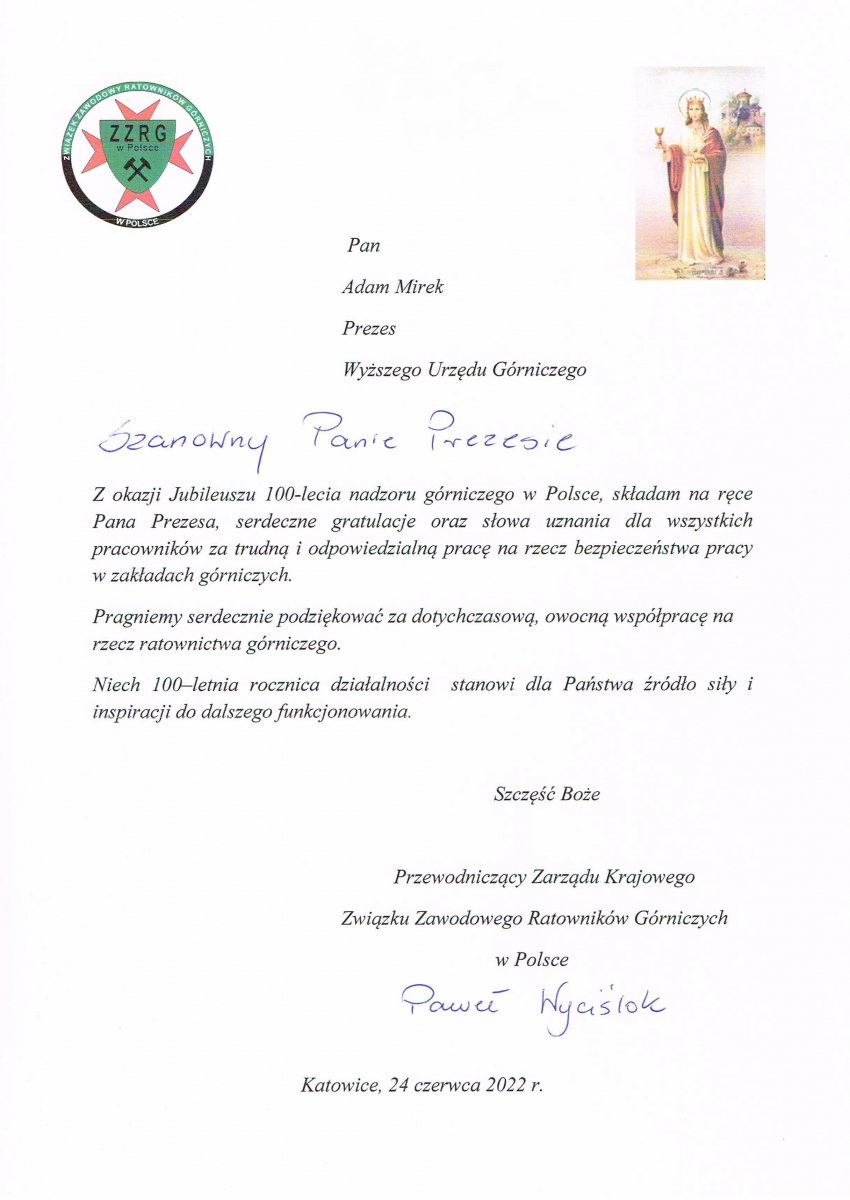 ZWIĄZEK ZAWODOWY RATOWNIKÓW GÓRNICZYCH
ZZRG
w Polsce
W POLSCE
Pan
Adam Mirek
Prezes
Wyższego Urzędu Górniczego
Szanowny Panie Prezesie
Z okazji Jubileuszu 100-lecia nadzoru górniczego w Polsce, składam na ręce
Pana Prezesa, serdeczne gratulacje oraz słowa uznania dla wszystkich
pracowników za trudną i odpowiedzialną pracę na rzecz bezpieczeństwa pracy
w zakładach górniczych.
Pragniemy serdecznie podziękować za dotychczasową, owocną współpracę na
rzecz ratownictwa górniczego.
Niech 100–letnia rocznica działalności stanowi dla Państwa źródło siły i
inspiracji do dalszego funkcjonowania.
Szczęść Boże
Przewodniczący Zarządu Krajowego
Związku Zawodowego Ratowników Górniczych
w Polsce
Paweł Wyciślok
Katowice, 24 czerwca 2022 r.